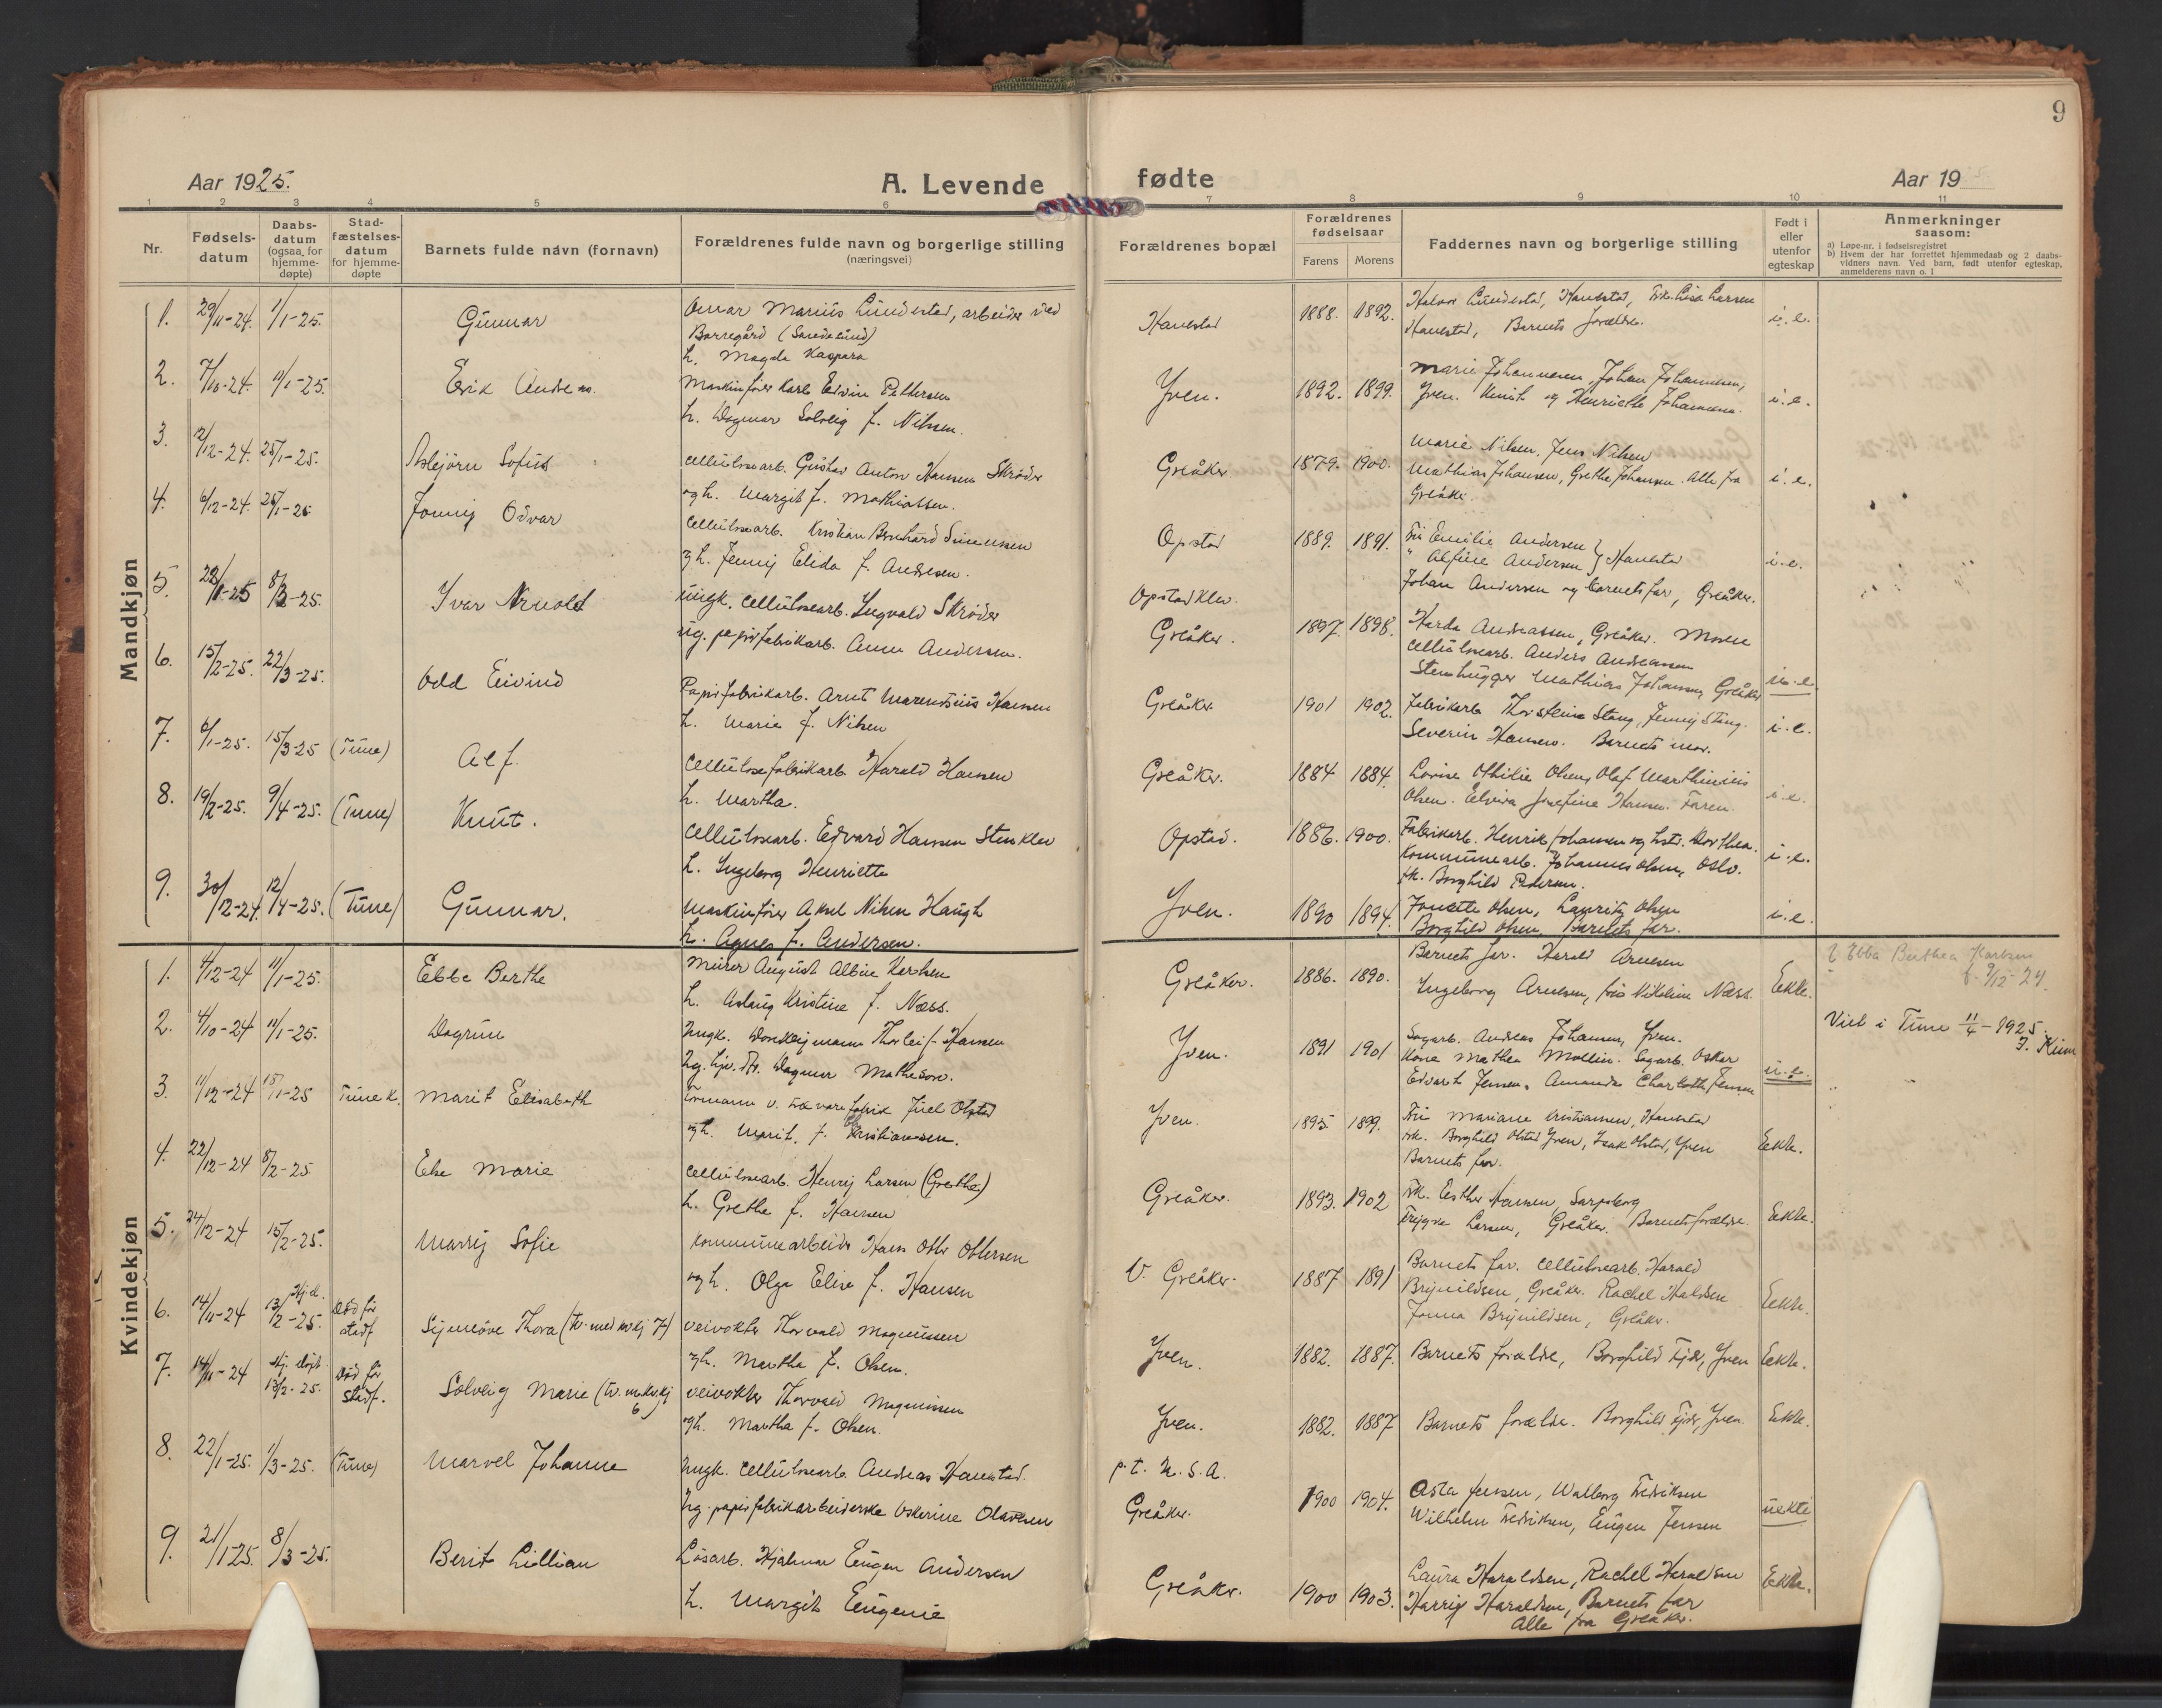 9
Aar 1925.
A. Levende
fødte
Aar 19
1 2 3 4 5 6 7 8 9 10 11
Nr.
Fødsels-
datum
Daabs-
datum
(ogsaa for
hjemme-
døpte)
Stad-
fæstelses-
datum
for hjemme-
døpte
Barnets fulde navn (fornavn)
Forældrenes fulde navn og borgerlige stilling
(næringsvei)
Forældrenes bopæl
Forældrenes
fødselsaar
Farens Morens
Faddernes navn og borgerlige stilling
Født i
eller
utenfor
egteskap
Anmerkninger
saasom:
a) Løpe-nr. i fødselsregistret
b) Hvem der har forrettet hjemmedaab og 2 daabs-
vidners navn. Ved barn, født utenfor egteskap,
anmelderens navn o. l
Mandkjøn
1. 29/11-24. 1/1-25. Gunnar
Omar Marius Lundestad, arbeider ved
Borregård (Sandesund)
h. Magda Kaspara
Hanestad 1888. 1892.
Halvor Lundestad, Hanestad, Frk. Lisa Larsen
Hanestad, Barnets forældre.
i. e.
2. 7/10-24. 11/1-25. Erik Andreas.
Maskinfører Karl Edvin Pettersen
h. Dagmar Solveig f. Nilsen.
Yven. 1892. 1899.
Marie Johannesen, Johan Johannesen,
Yven. og Henriette Johannesen.
i. e.
3. 12/12-24. 25/1-25. Asbjørn Sofus
Cellulosearb. Gustav Anton Hansen Skrøder
og h. Margit f. Mathiassen.
Greåker 1879. 1900.
Marie Nilsen, Jens Nilsen
Mathias Johansen, Grethe Johansen. Alle fra
Greåker.
i. e.
4. 6/12-24. 26/1-25 Jonny Odvar
Cellulosearb. Kristian Bernhard Simensen
og h. Jenny Elida f. Andresen.
Opstad 1889. 1891.
Fru Emilie Andersen
" Alfine Andersen } Hanestad
Johan Andersen og barnets far, Greåker.
i. e.
5. 22/1-25 8/3-25. Ivar Arnold
ungk. cellulosearb. Ingvald Skrøder
ug. papirfabrikarb. Anna Andersen.
Opstad Klev.
Greåker. 1897. 1898.
Harda Andreassen, Greåker. Moren
Cellulosearb. Anders Andreassen
Stenhugger Mathias Johansen, Greåker
u. e.
6. 15/2-25. 22/3-25. Odd Eivind
Papirfabrikarb. Arnt Marentsius Hansen
h. Maria f. Nilsen
Greåker 1901 1902.
Fabrikarb. Thorstein Stang, Jenny Stang.
Severin Hansen. Barnets mor.
i. e.
7. 6/1-25. 15/3-25 (Tune) Alf.
Cellulosefabrikarb. Harald Hansen
h. Martha.
Greåker. 1884 1884.
Lovise Othilie Olsen, Olaf Marthinius
Olsen. Elvira Josefine Hansen. Faren.
i. e.
8. 19/2-25. 9/4-25. (Tune) Knut.
Cellulosearb. Edvard Hansen Stenklev
h. Ingeborg Henriette
Opstad. 1886. 1900.
Fabrikarb. Henrik Johansen og hst. Dorthea.
Kommunearb. Johannes Olsen, Oslo.
frk. Borghild Pedersen.
i. e.
9. 30/12-24. 12/4-25. (Tune) Gunnar.
Maskinfører Aksel Nilsen Haugh
h. Agnes f. Andersen.
Yven. 1890 1894.
Jonette Olsen, Lauritz Olsen
Borghild Olsen, Barnets far.
i. e.
Kvindekjøn
1. 4/12-24 11/1-25. Ebba Berthe
Murer August Albin Karlsen
h. Aslaug Kristine f. Næss.
Greåker. 1886. 1890.
Barnets far. Harald Arnesen
Ingeborg Arnesen, frk Nikoline Næss.
Ekte.
Ebba Berthea Karlsen
f. 9/12-24.
2. 4/10-24 11/1-25. Dagrun
Ungk. Thorleif Hansen
Ug. Dagmar Mathesen.
Yven. 1891 1901
Sagarb. Andreas Johansen, Yven.
Kona Mathea Mollin. Sagarb. Oskar
Edvart Jensen. Amanda Charlotte Jensen
u. e.
Viet i Tune 11/4-1925.
3. 11/12-24 15/1-25 Tune K. Marit Elisabeth
Formann v. trævarefabrik Juel Olstad
og h. Marit, f. Kristiansen.
Yven. 1895 1899.
Fru Mariane Kristiansen, Hanestad
frk. Borghild Olstad Yven, Isak Olstad, Yven
Barnets far.
Ekte.
4. 22/12-24 8/2-25 Else Marie
Cellulosearb. Henry Larsen (Grethe)
h. Grethe f. Hansen
Greåker. 1893. 1902
Frk. Esther Hansen, Sarpsborg
Trygve Larsen, Greåker. Barnets forældre.
Ekte.
5. 24/12-24 15/2-25. Marry Sofie
Kommunearbeider Hans Ottersen
og h. Olga Elise f. Hansen
V. Greåker. 1887 1891
Barnets far. Cellulosearb. Harald
Brynildsen, Greåker. Rachel Haldsen
Jonna Brynildsen, Greåker.
Ekte.
6. 14/11-24 13/2-25. Hj. d. Død før stadf. Synnøve Thora (tv. med kv.kj. 7)
Veivokter Thorvald Magnussen
og h. Martha f. Olsen.
Yven. 1882. 1887.
Barnets forældre, Borghild Fjeld, Yven
Ekte.
7. 14/11-24 Hj. døpt 13/2-25. Død før stadf. Solveig Marie (tv. m. kv.kj 6)
Veivokter Thorvald Magnussen
og h. Martha f. Olsen.
Yven. 1882. 1887
Barnets forældre. Borghild Fjeld, Yven.
Ekte.
8. 22/1-25. 1/3-25. (Tune) Marvel Johanne
Ungk. cellulosearb. Andreas Hanestad.
Ug. papirfabrikarbeiderske Oskarine Olavesen
p. t. U. S. A.
Greåker. 1900 1904.
Asta Jensen, Walborg Fredriksen
Wilhelm Fredriksen, Eugen Jensen
uekte
9. 21/1-25. 8/3-25. Berit Lillian
Løsarb. Hjalmar Eugen Andersen
h. Margit Eugenie
Greåker. 1900 1903.
Laura Haraldsen, Rachel Haraldsen
Harry Haraldsen, Barnets far
Alle fra Greåker.
Ekte.